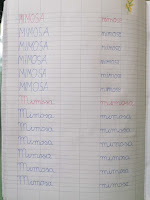 MIMOSA mimosa
MIMOSA mimosa
MIMOSA mimosa
MIMOSA mimosa
MIMOSA mimosa
MIMOSA mimosa
Mimosa mimosa
Mimosa mimosa
Mimosa mimosa
Mimosa mimosa
Mimosa mimosa
Mimosa mimosa
Mimosa mimosa